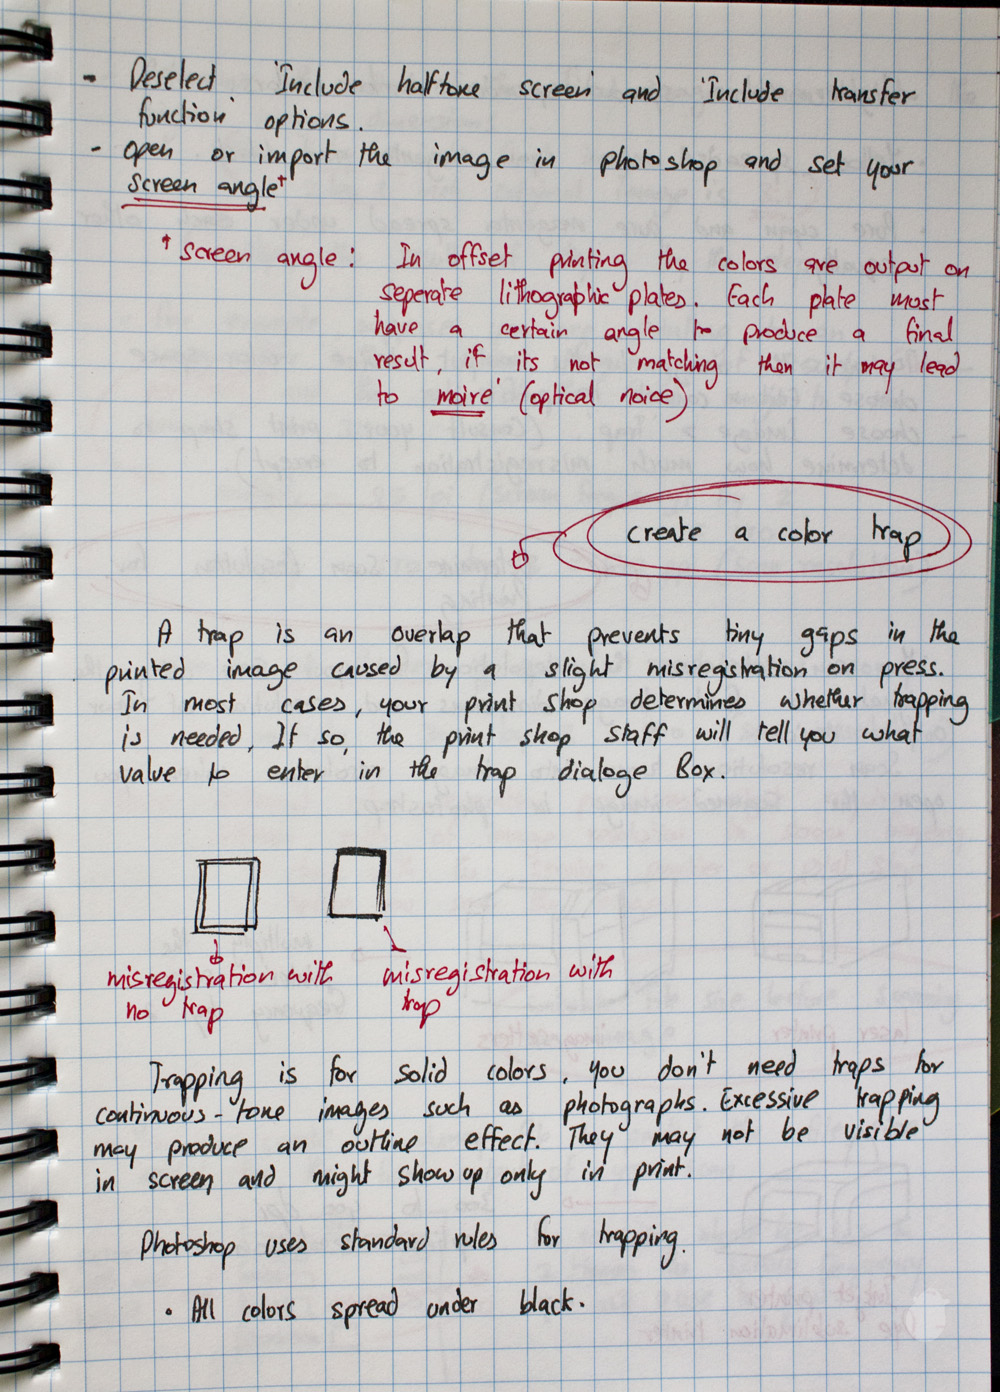 - Deselect 'Include halftone screen' and 'Include transfer
function' options.
- open or import the image in photoshop and set your
screen angle†
† screen angle: In offset printing the colors are output on
seperate lithographic plates. Each plate must
have a certain angle to produce a final
result, if its not matching then it may lead
to moire' (optical noice)
create a color trap
A trap is an overlap that prevents tiny gaps in the
printed image caused by a slight misregistration on press.
In most cases, your print shop determines whether trapping
is needed, If so, the print shop staff will tell you what
value to enter in the trap dialoge Box.
misregistration with
no trap
misregistration with
trap
Trapping is for solid colors, you don't need traps for
continuous-tone images such as photographs. Excessive trapping
may produce an outline effect. They may not be visible
in screen and might show up only in print.
Photoshop uses standard rules for trapping.
• All colors spread under black.